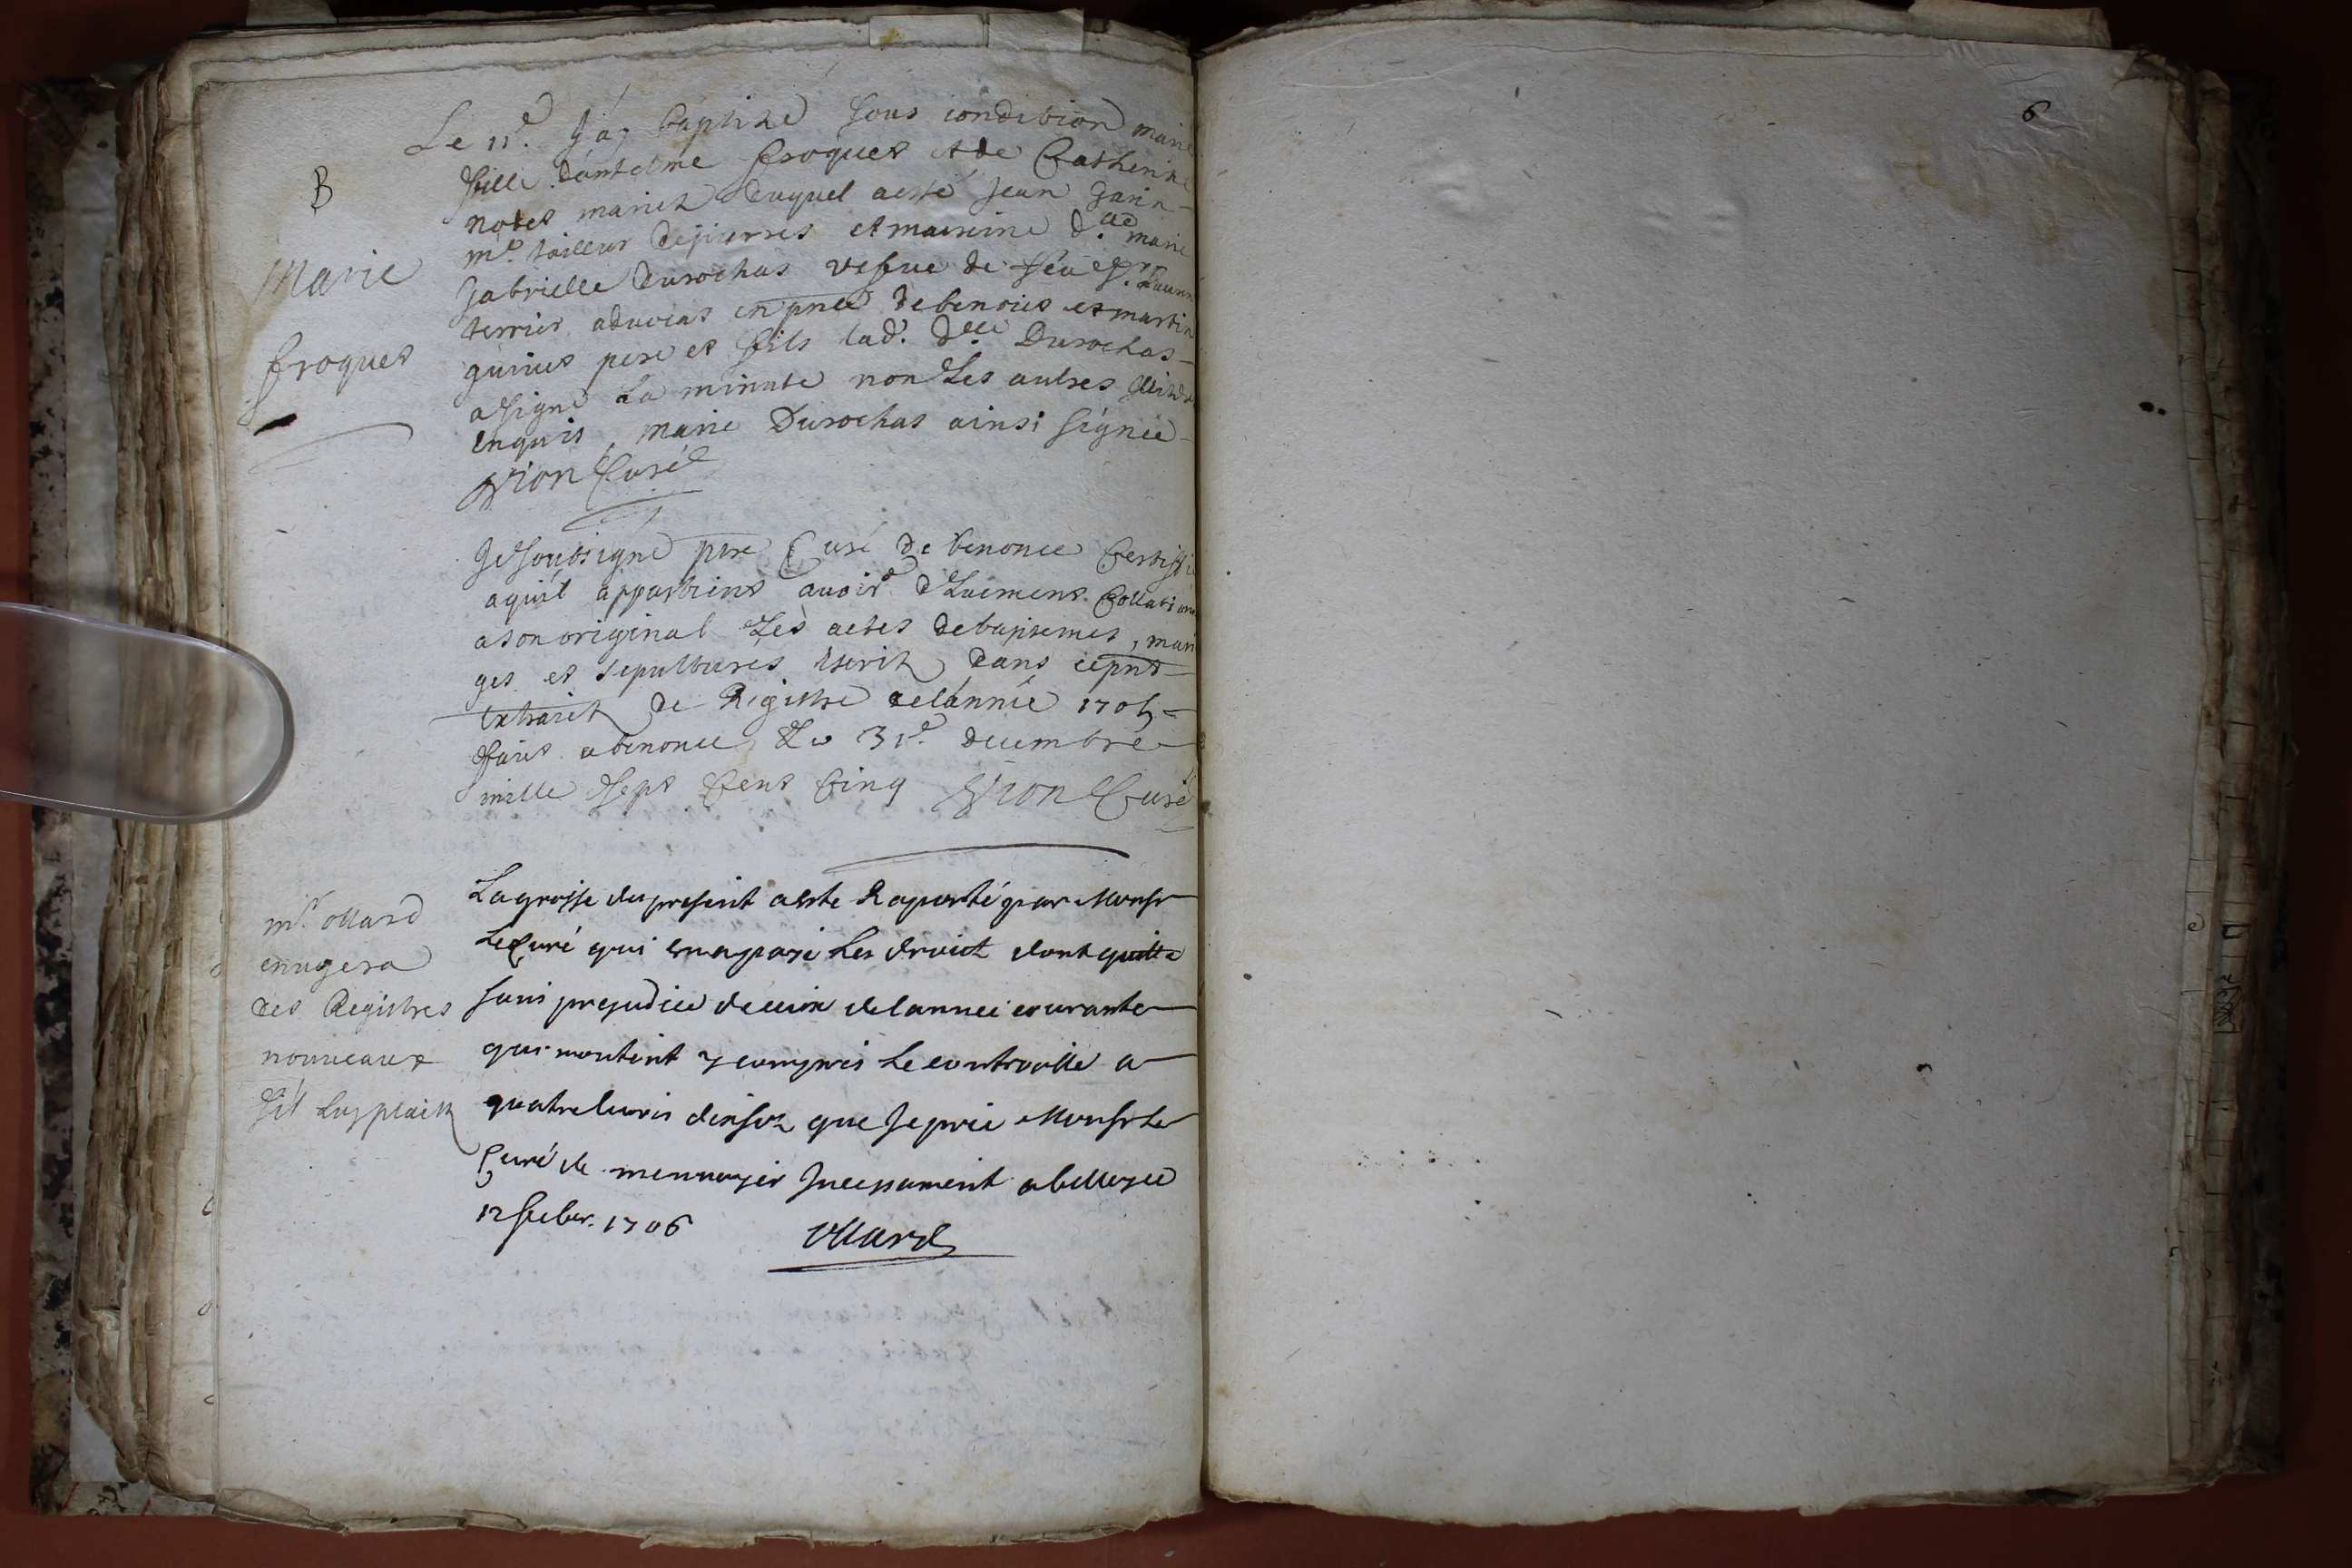 6
B
Marie
froquet
Le 11e. J'ay baptizé sous condition marie
fille d'antelme froquet et de Catherine
notet mariez duquel a esté Jean Garin
me. tailleur de pierres et marrine dlle marie
Gabrielle Durochas vefue de feu Sr.
terrier aduocat en pnce de benoict et martin
guinet pere et fils lad. dlle. Durochas
a signé La minute non Les autres
enquis, marie Durochas ainsi signée
Vion Curé
Je soubsigné pbre Curé de benonce Certiffie
a qu'il appartient auoir deüement Collationé
a son original Les actes de baptemes, maria
ges et sepultures escrit dans ce pnt
extrait de Registre de l'année 1705
fait a benonce Le 31e. decembre
mille sept Cent Cinq Vion Curé
mr. ollard
enugera
des Registres
nouueaux
s'il luy plait
La grosse du present a este Raporté par Monsr
Le Curé qui en a payé Les droict dont quitte
sans prejudice de ceux de lannee courante
qui montent y compris Le controolle a
quatre liures dix solz que Je prie Monsr Le
Curé de mennuoyer Incessament a belley ce
12 feber. 1706
ollard